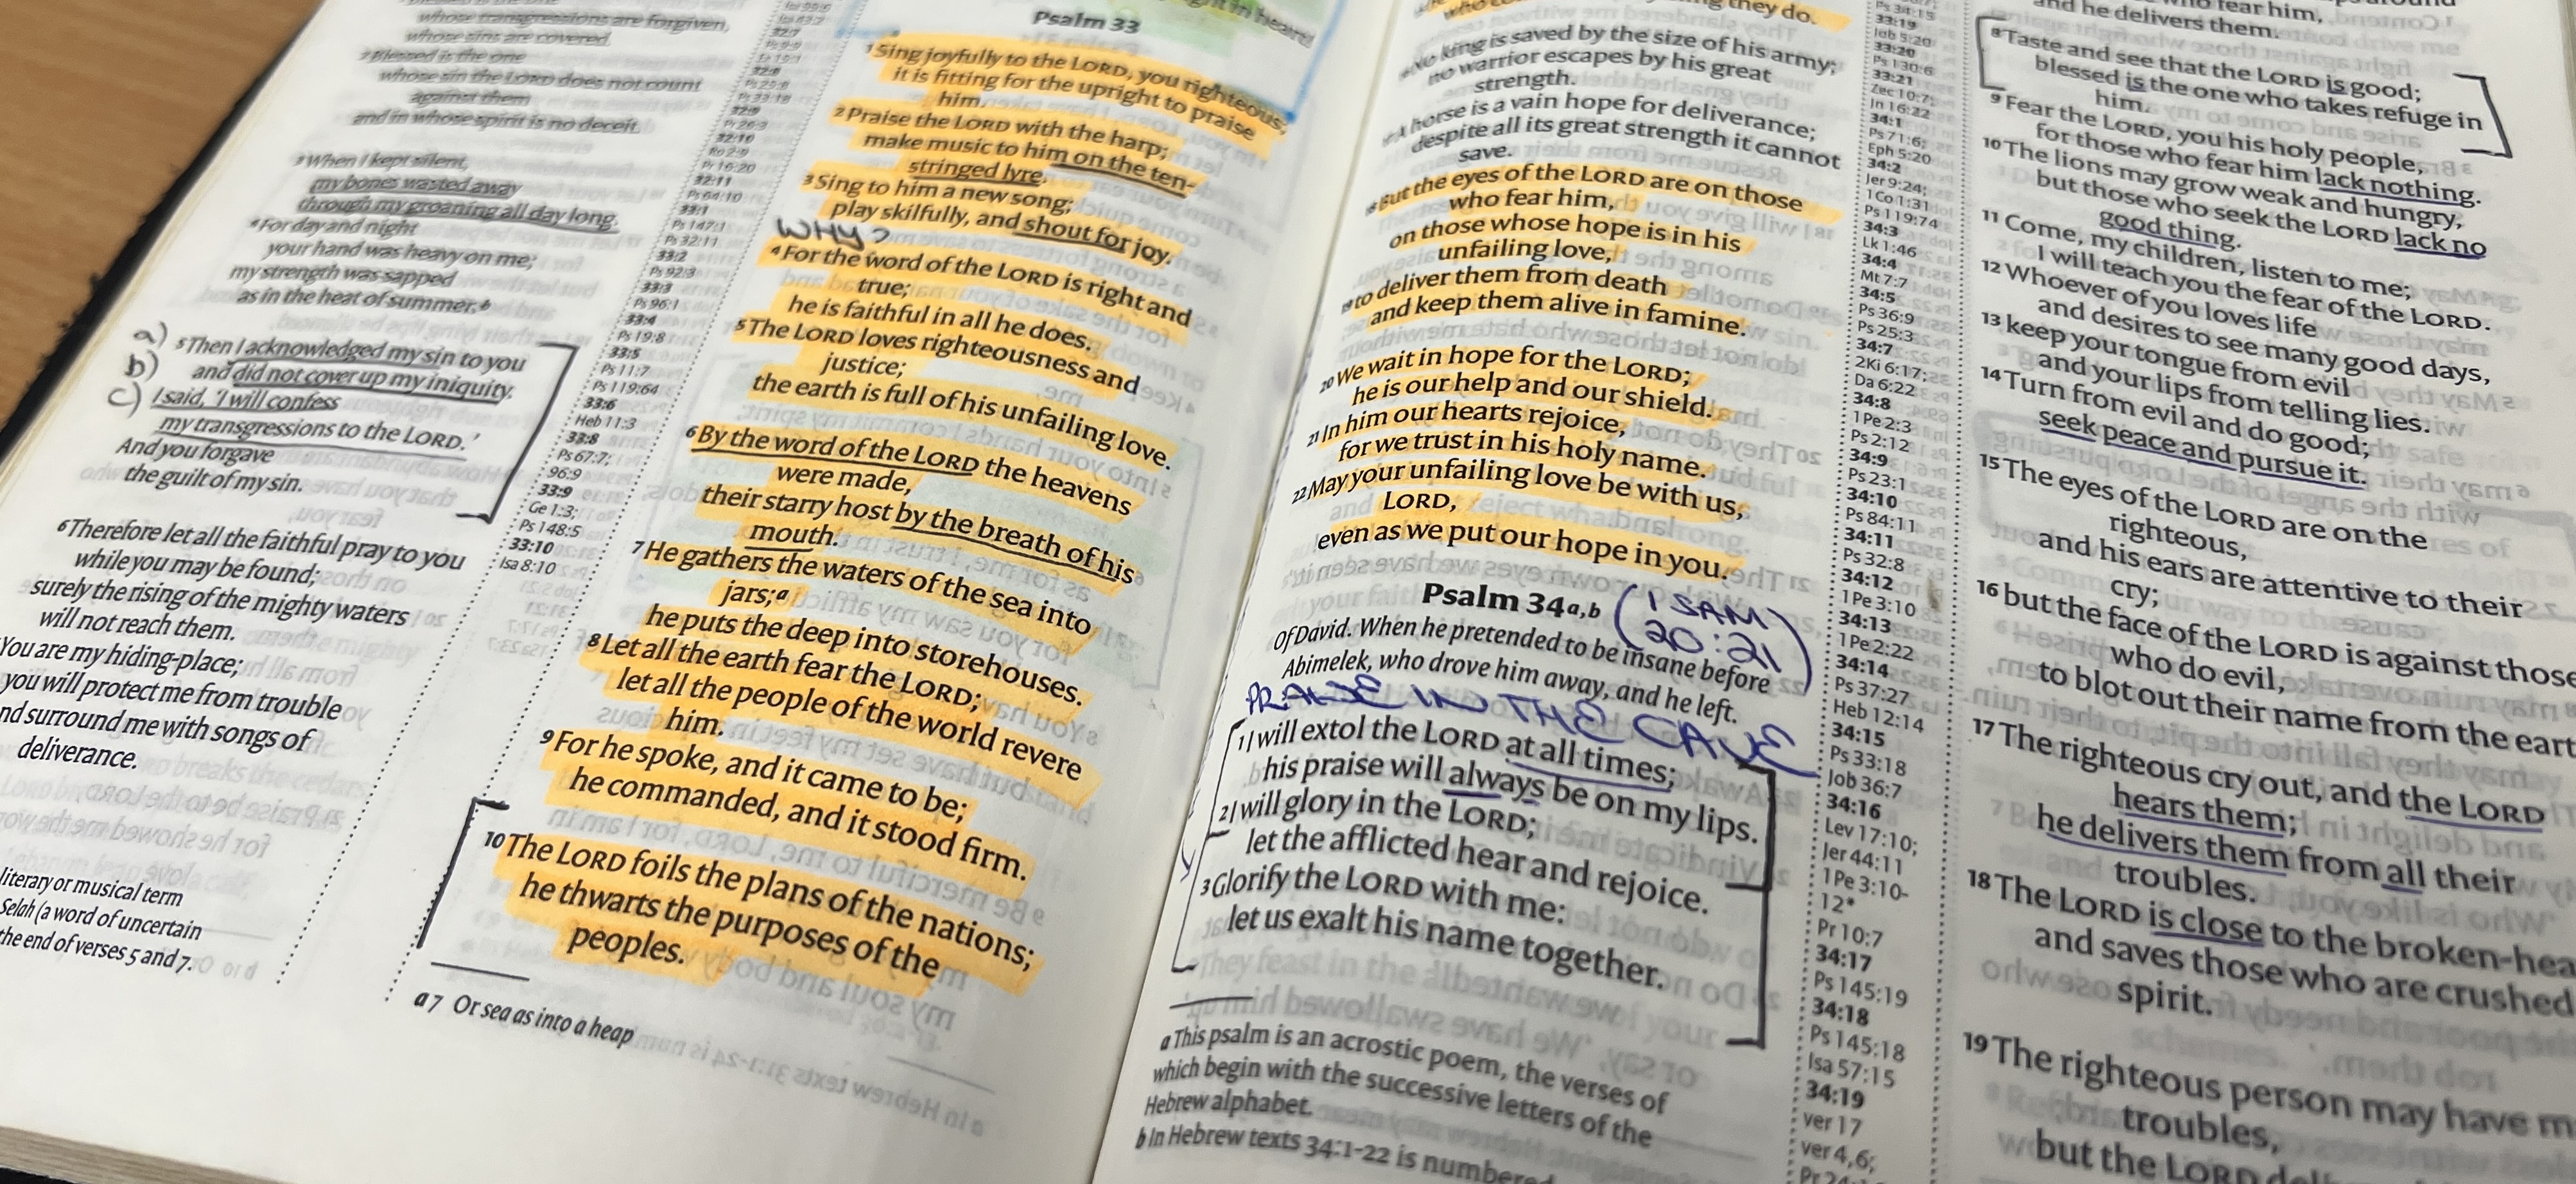 whose transgressions are forgiven,
whose sins are covered.
2 Blessed is the one
whose sin the LORD does not count
against them
and in whose spirit is no deceit.
3 When I kept silent,
my bones wasted away
through my groaning all day long.
4 For day and night
your hand was heavy on me;
my strength was sapped
as in the heat of summer.b
a) 5 Then I acknowledged my sin to you
b) and did not cover up my iniquity.
c) I said, 'I will confess
my transgressions to the LORD.'
And you forgave
the guilt of my sin.
6 Therefore let all the faithful pray to you
while you may be found;
surely the rising of the mighty waters
will not reach them.
You are my hiding-place;
you will protect me from trouble
nd surround me with songs of
deliverance.
literary or musical term
Selah (a word of uncertain
the end of verses 5 and 7.
32:9
32:10
Ro 2:9
Pr 16:20
32:11
Ps 64:10
33:1
Ps 147:1
Ps 32:11
33:2
Ps 92:3
33:3
Ps 96:1
33:4
Ps 19:8
33:5
Ps 11:7
Ps 119:64
33:6
Heb 11:3
33:8
Ps 67:7;
96:9
33:9
Ge 1:3;
Ps 148:5
33:10
Isa 8:10
Psalm 33
1 Sing joyfully to the LORD, you righteous;
it is fitting for the upright to praise
him.
2 Praise the LORD with the harp;
make music to him on the ten-
stringed lyre.
3 Sing to him a new song;
play skilfully, and shout for joy.
WHY?
4 For the word of the LORD is right and
true;
he is faithful in all he does.
5 The LORD loves righteousness and
justice;
the earth is full of his unfailing love.
6 By the word of the LORD the heavens
were made,
their starry host by the breath of his
mouth.
7 He gathers the waters of the sea into
jars;a
he puts the deep into storehouses.
8 Let all the earth fear the LORD;
let all the people of the world revere
him.
9 For he spoke, and it came to be;
he commanded, and it stood firm.
10 The LORD foils the plans of the nations;
he thwarts the purposes of the
peoples.
a 7 Or sea as into a heap
they do.
No king is saved by the size of his army;
no warrior escapes by his great
strength.
A horse is a vain hope for deliverance;
despite all its great strength it cannot
save.
18 But the eyes of the LORD are on those
who fear him,
on those whose hope is in his
unfailing love,
19 to deliver them from death
and keep them alive in famine.
20 We wait in hope for the LORD;
he is our help and our shield.
21 In him our hearts rejoice,
for we trust in his holy name.
22 May your unfailing love be with us,
LORD,
even as we put our hope in you.
Psalm 34a,b
(1 SAM
20:21)
Of David. When he pretended to be insane before
Abimelek, who drove him away, and he left.
PRAISE IN THE CAVE
1 I will extol the LORD at all times;
his praise will always be on my lips.
2 I will glory in the LORD;
let the afflicted hear and rejoice.
3 Glorify the LORD with me:
let us exalt his name together.
a This psalm is an acrostic poem, the verses of
which begin with the successive letters of the
Hebrew alphabet.
b In Hebrew texts 34:1-22 is numbered
Ps 34:15
33:19
Job 5:20
33:20
Ps 130:6
33:21
Zec 10:7;
Jn 16:22
34:1
Ps 71:6;
Eph 5:20
34:2
Jer 9:24;
1 Co 1:31
Ps 119:74
34:3
Lk 1:46
34:4
Mt 7:7
34:5
Ps 36:9
Ps 25:3
34:7
2Ki 6:17;
Da 6:22
34:8
1 Pe 2:3
Ps 2:12
34:9
Ps 23:1
34:10
Ps 84:11
34:11
Ps 32:8
34:12
1 Pe 3:10
34:13
1 Pe 2:22
34:14
Ps 37:27
Heb 12:14
34:15
Ps 33:18
Job 36:7
34:16
Lev 17:10;
Jer 44:11
1 Pe 3:10-
12*
Pr 10:7
34:17
Ps 145:19
34:18
Ps 145:18
Isa 57:15
34:19
ver 17
ver 4,6;
and he delivers them.
8 Taste and see that the LORD is good;
blessed is the one who takes refuge in
him.
9 Fear the LORD, you his holy people,
for those who fear him lack nothing.
10 The lions may grow weak and hungry,
but those who seek the LORD lack no
good thing.
11 Come, my children, listen to me;
I will teach you the fear of the LORD.
12 Whoever of you loves life
and desires to see many good days,
13 keep your tongue from evil
and your lips from telling lies.
14 Turn from evil and do good;
seek peace and pursue it.
15 The eyes of the LORD are on the
righteous,
and his ears are attentive to their
cry;
16 but the face of the LORD is against those
who do evil,
to blot out their name from the eart
17 The righteous cry out, and the LORD
hears them;
he delivers them from all their
troubles.
18 The LORD is close to the broken-hea
and saves those who are crushed
spirit.
19 The righteous person may have m
troubles,
but the LORD